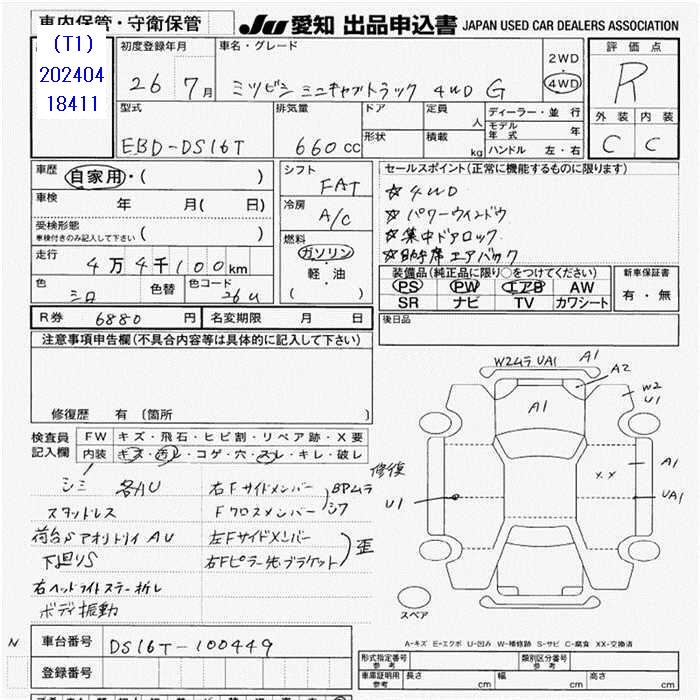 車内保管・守衛保管
(T1)
202404
18411
JU 愛知 出品申込書 JAPAN USED CAR DEALERS ASSOCIATION
初度登録年月
26 7月
車名・グレード
ミツビシ ミニキャブトラック 4WD G
2WD
4WD
評価点
R
外装 内装
C C
型式
EBD-DS16T
排気量
660cc
ドア
形状
定員
人
積載
kg
ディーラー・並行
モデル年式 年
ハンドル 左・右
車歴
自家用・( )
車検 年 月( 日)
受検形態
車検付きのみ記入して下さい ( )
走行
4万4千100km
色
シロ
色替
色コード
26U
シフト
FAT
冷房
A/C
燃料
ガソリン
・
軽・油
( )
セールスポイント(正常に機能するものに限ります)
☆4WD
☆パワーウインドウ
☆集中ドアロック
☆助手席エアバック
装備品(純正品に限り○をつけてください)
PS PW エアB AW
SR ナビ TV カワシート
新車保証書
有・無
R券 6880円
名変期限 月 日
後日品
注意事項申告欄(不具合内容等は具体的に記入して下さい)
修復歴 有 〔箇所 〕
検査員
記入欄
FW キズ・飛石・ヒビ割・リペア跡・X要
内装 キズ・汚れ・コゲ・穴・スレ・キレ・破レ
シミ 各AU
スタッドレス
荷台S アオリトリイ AU
下廻りS
右ヘッドライトステー折レ
ボディ振動
修復
右Fサイドメンバー
Fクロスメンバー
BPムラ
シワ
左Fサイドメンバー
右Fピラー先ブラケット
歪
W2ムラ UA1
A1
A2
A1
W2
U1
A1
XX
UA1
U1
スペア
A-キズ E-エクボ U-凹み W-補修跡 S-サビ C-腐食 XX-交換済
N
車台番号 DS16T-100449
登録番号
形式指定番号
参考
類別区分番号
参考
車庫証明用
参考
長さ cm 幅 cm 高さ cm